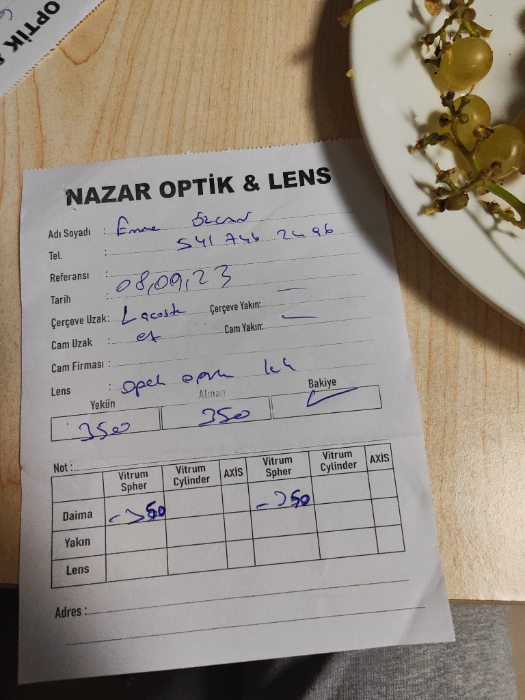 OPTİK &
NAZAR OPTİK & LENS
Adı Soyadı : Emre Özcan
Tel. : 541 746 2496
Referansı :
Tarih : 08,09,23
Çerçeve Uzak: Lacoste Çerçeve Yakın: —
Cam Uzak : Cam Yakın: —
Cam Firması :
Lens :
Yekün Alınan Bakiye
350 350
Not :
Vitrum Spher Vitrum Cylinder AXİS Vitrum Spher Vitrum Cylinder AXİS
Daima
Yakın
Lens
Adres :